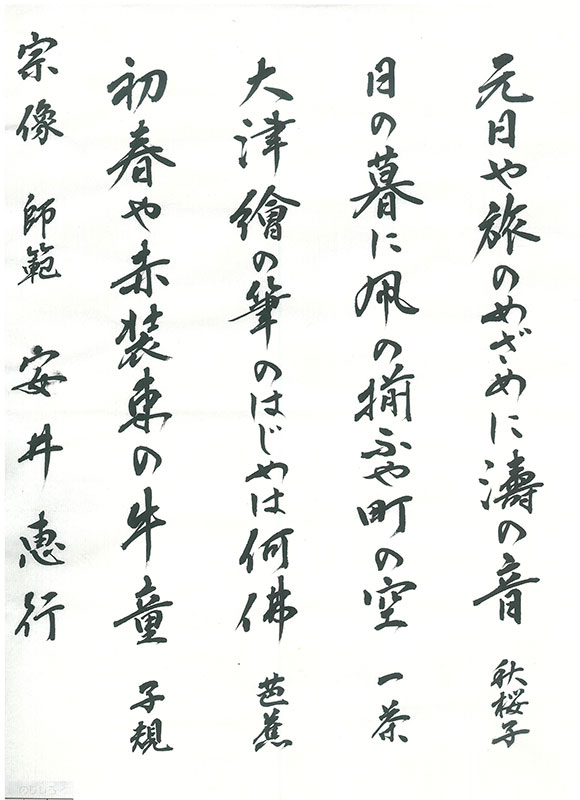 元日や旅のめざめに濤の音 秋桜子
日の暮に凧の揃ふや町の空 一茶
大津繪の筆のはじめは何佛 芭蕉
初春や赤装束の牛童 子規
宗像 師範 安井恵行